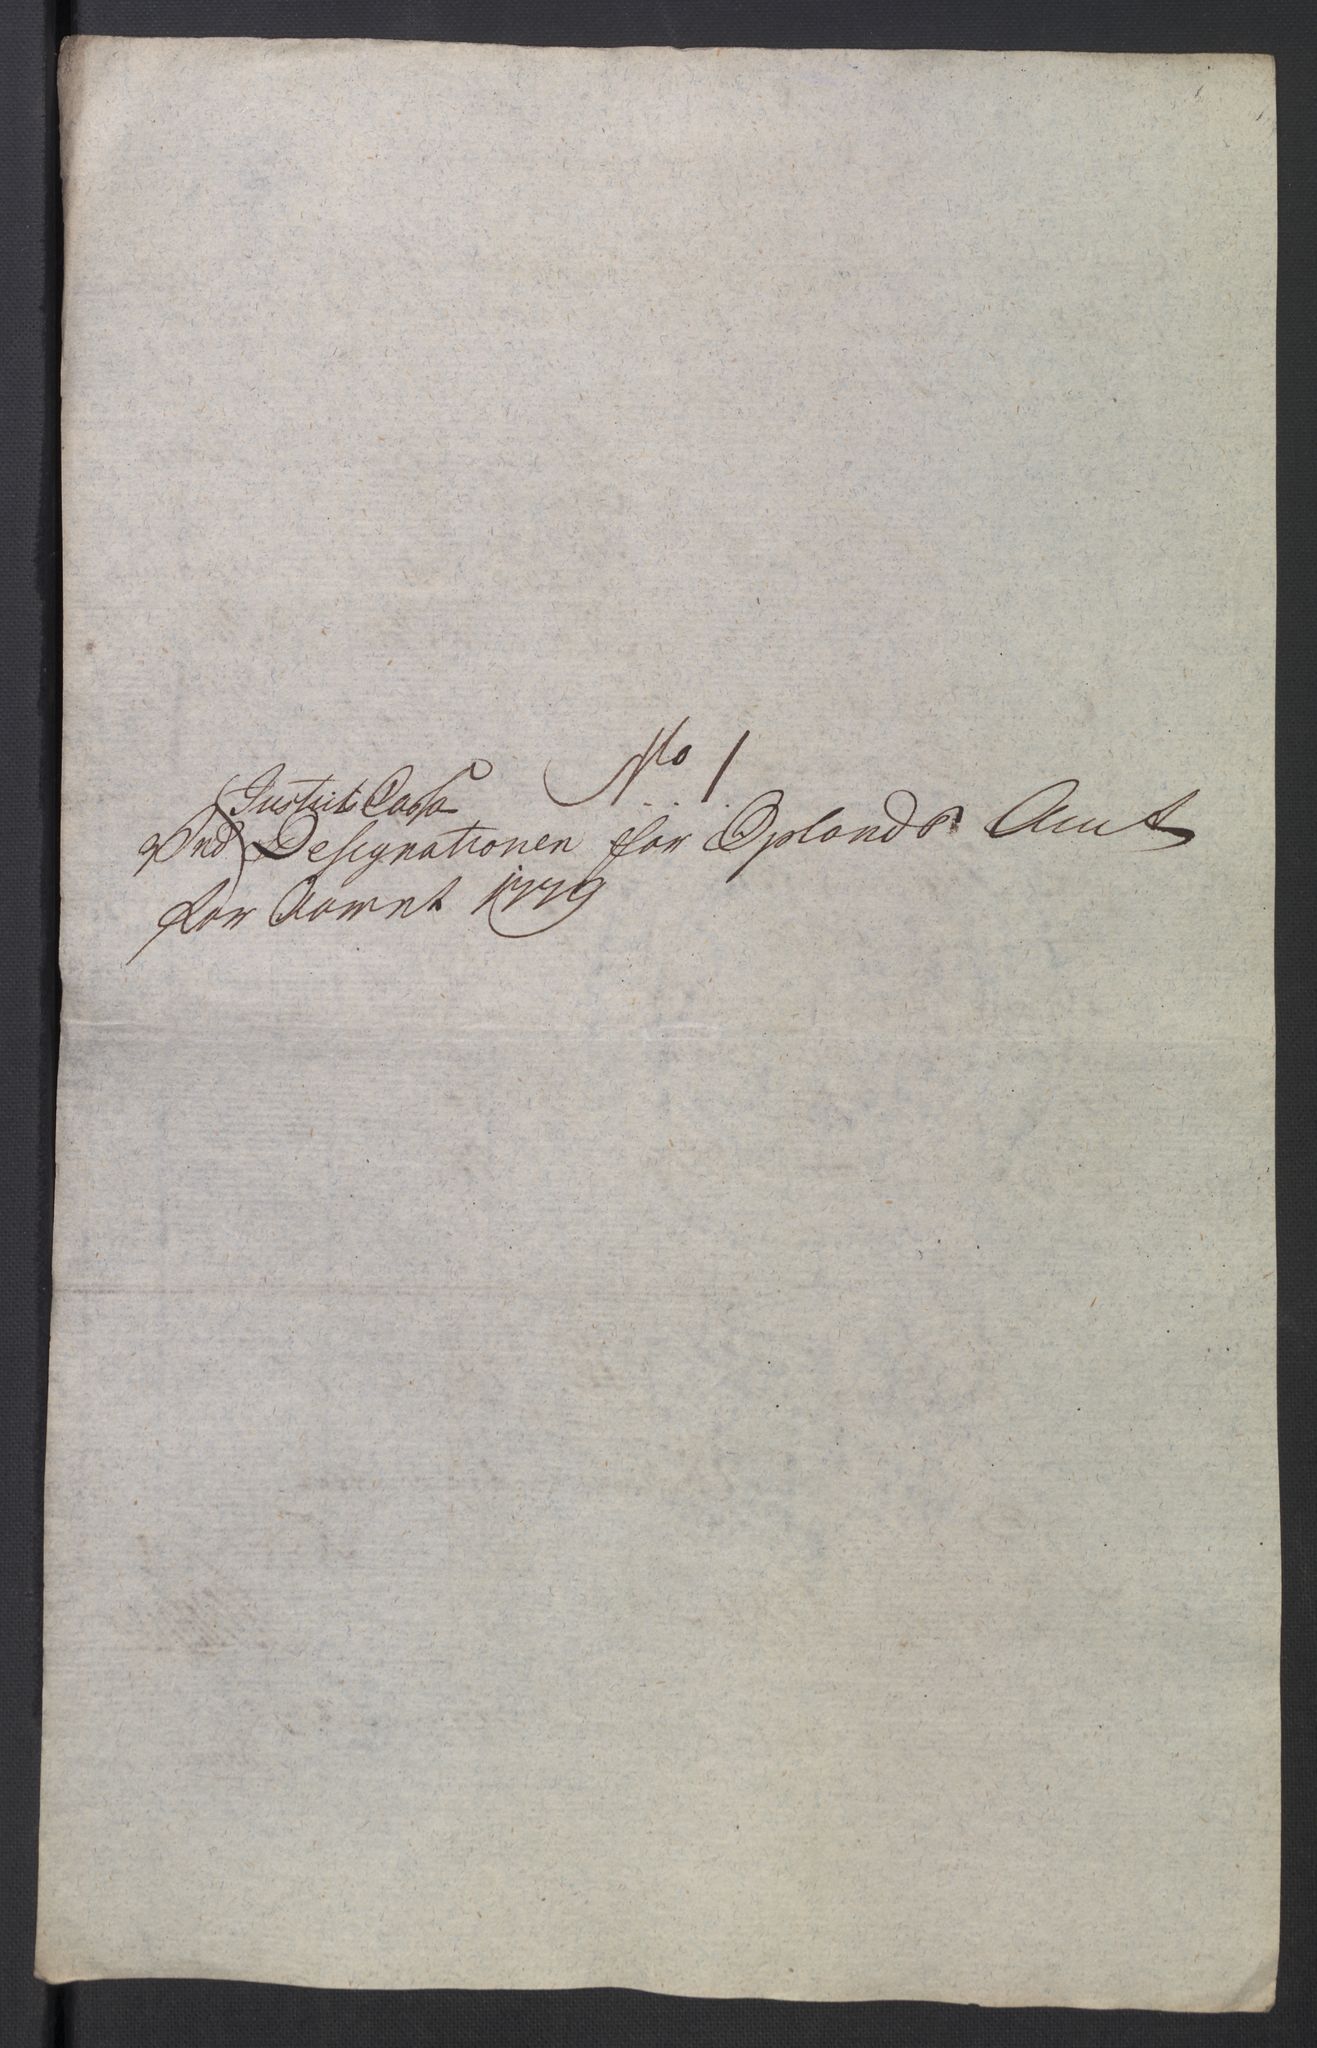 No 1
Justits Cassa
Designationen for Oplands Amt
for Aaret 1779